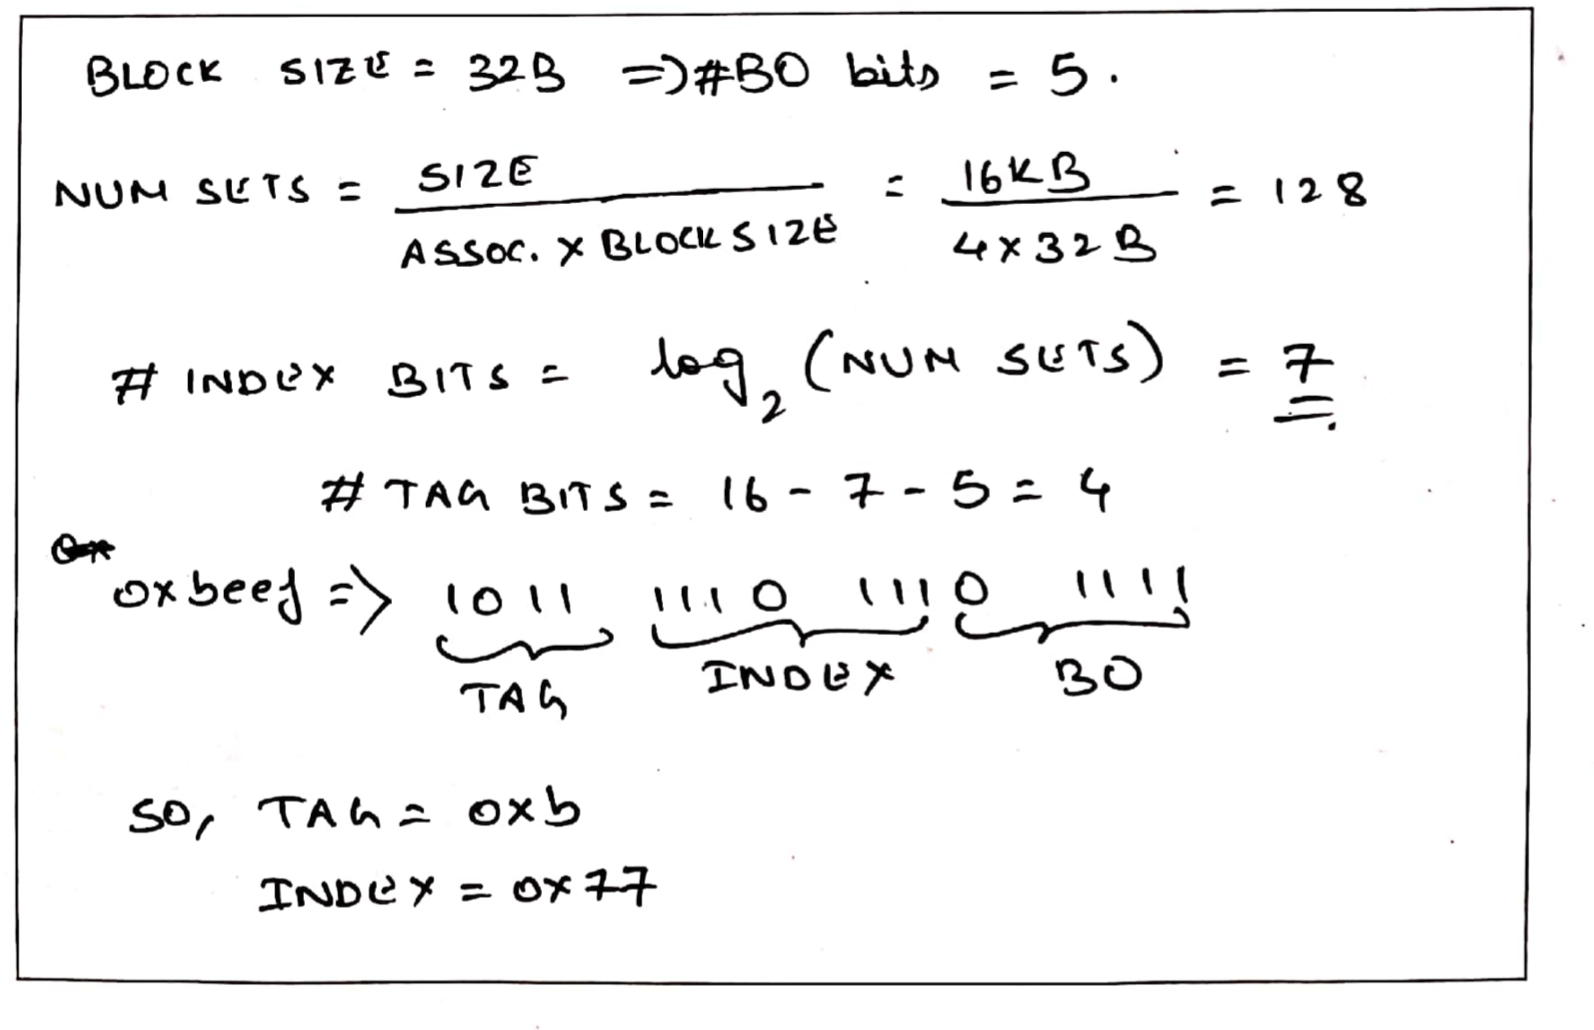 BLOCK SIZE = 32B =) #BO bits = 5.
NUM SETS = SIZE / ASSOC. X BLOCK SIZE = 16KB / 4 x 32 B = 128
# INDEX BITS = log2 (NUM SETS) = 7
# TAG BITS = 16 - 7 - 5 = 4
0xbeef => 1011 1110 1110 1111
TAG INDEX BO
SO, TAG = 0xb
INDEX = 0x77